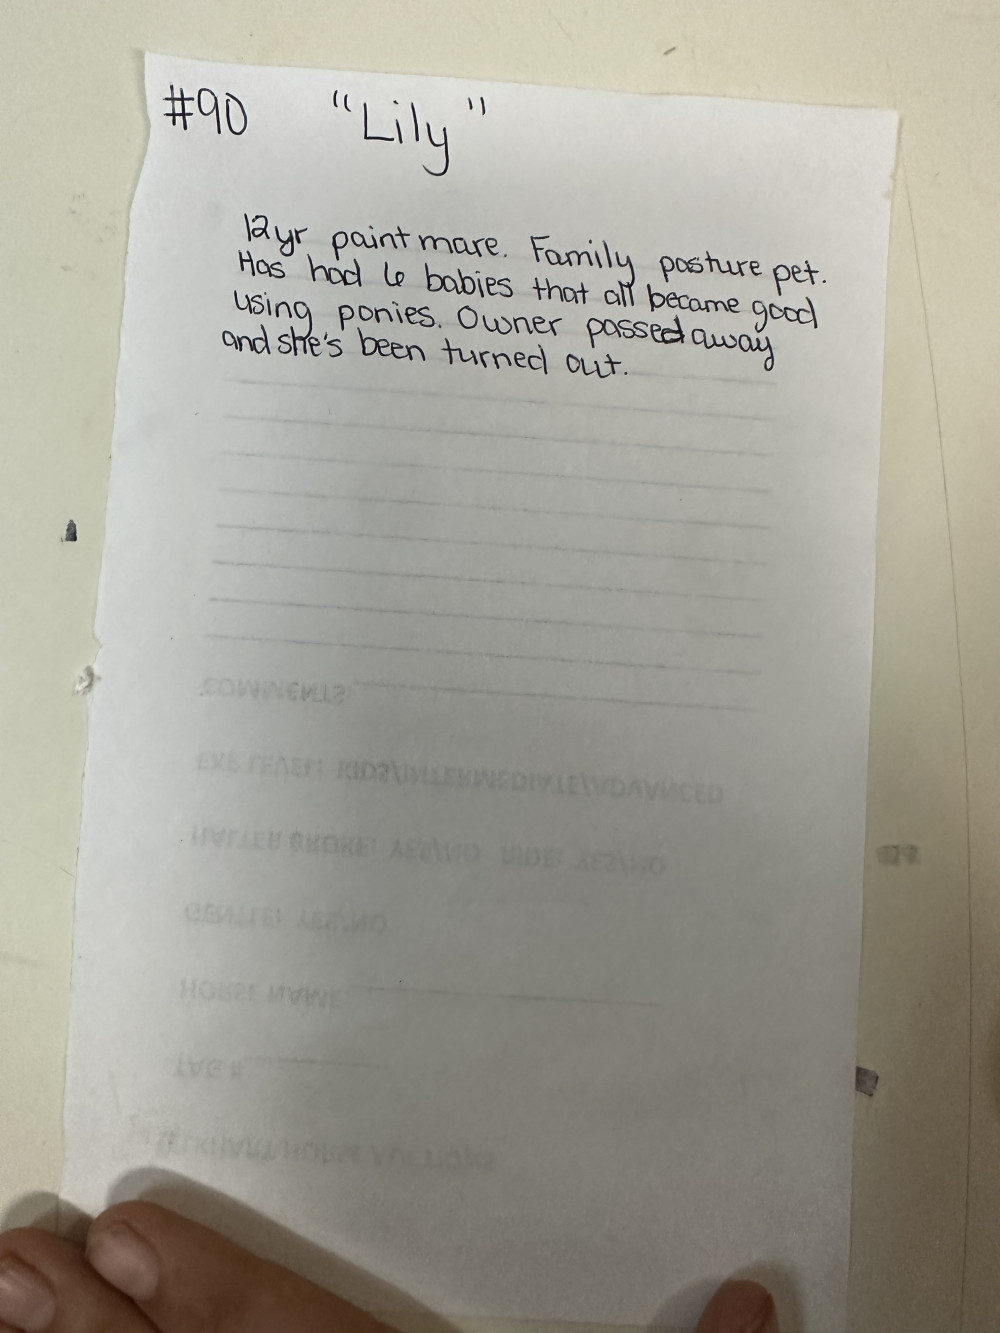 #90 "Lily"
12yr paint mare. Family pasture pet.
Has had 6 babies that all became good
using ponies. Owner passed away
and she's been turned out.
COMMENTS:
EXP LEVEL: KIDS/INTERMEDIATE/ADVANCED
HALTER BROKE: YES/NO RIDE: YES/NO
GENTLE: YES/NO
HORSE NAME
TAG #